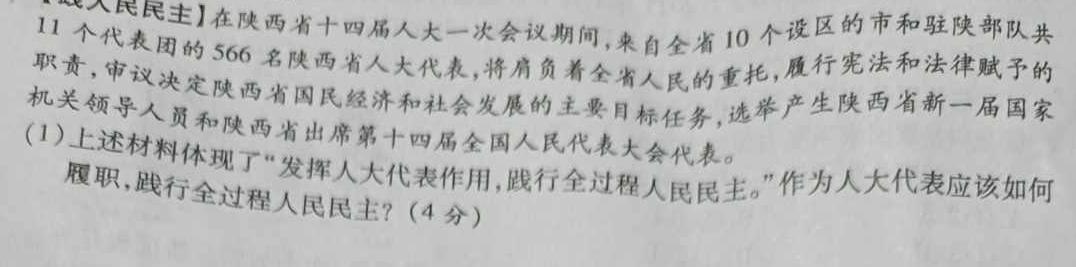 人民民主】在陕西省十四届人大一次会议期间,来自全省10个设区的市和驻陕部队共
11个代表团的566名陕西省人大代表,将肩负着全省人民的重托,履行宪法和法律赋予的
职责,审议决定陕西省国民经济和社会发展的主要目标任务,选举产生陕西省新一届国家
机关领导人员和陕西省出席第十四届全国人民代表大会代表。
(1)上述材料体现了“发挥人大代表作用,践行全过程人民民主。”作为人大代表应该如何
履职,践行全过程人民民主?(4分)